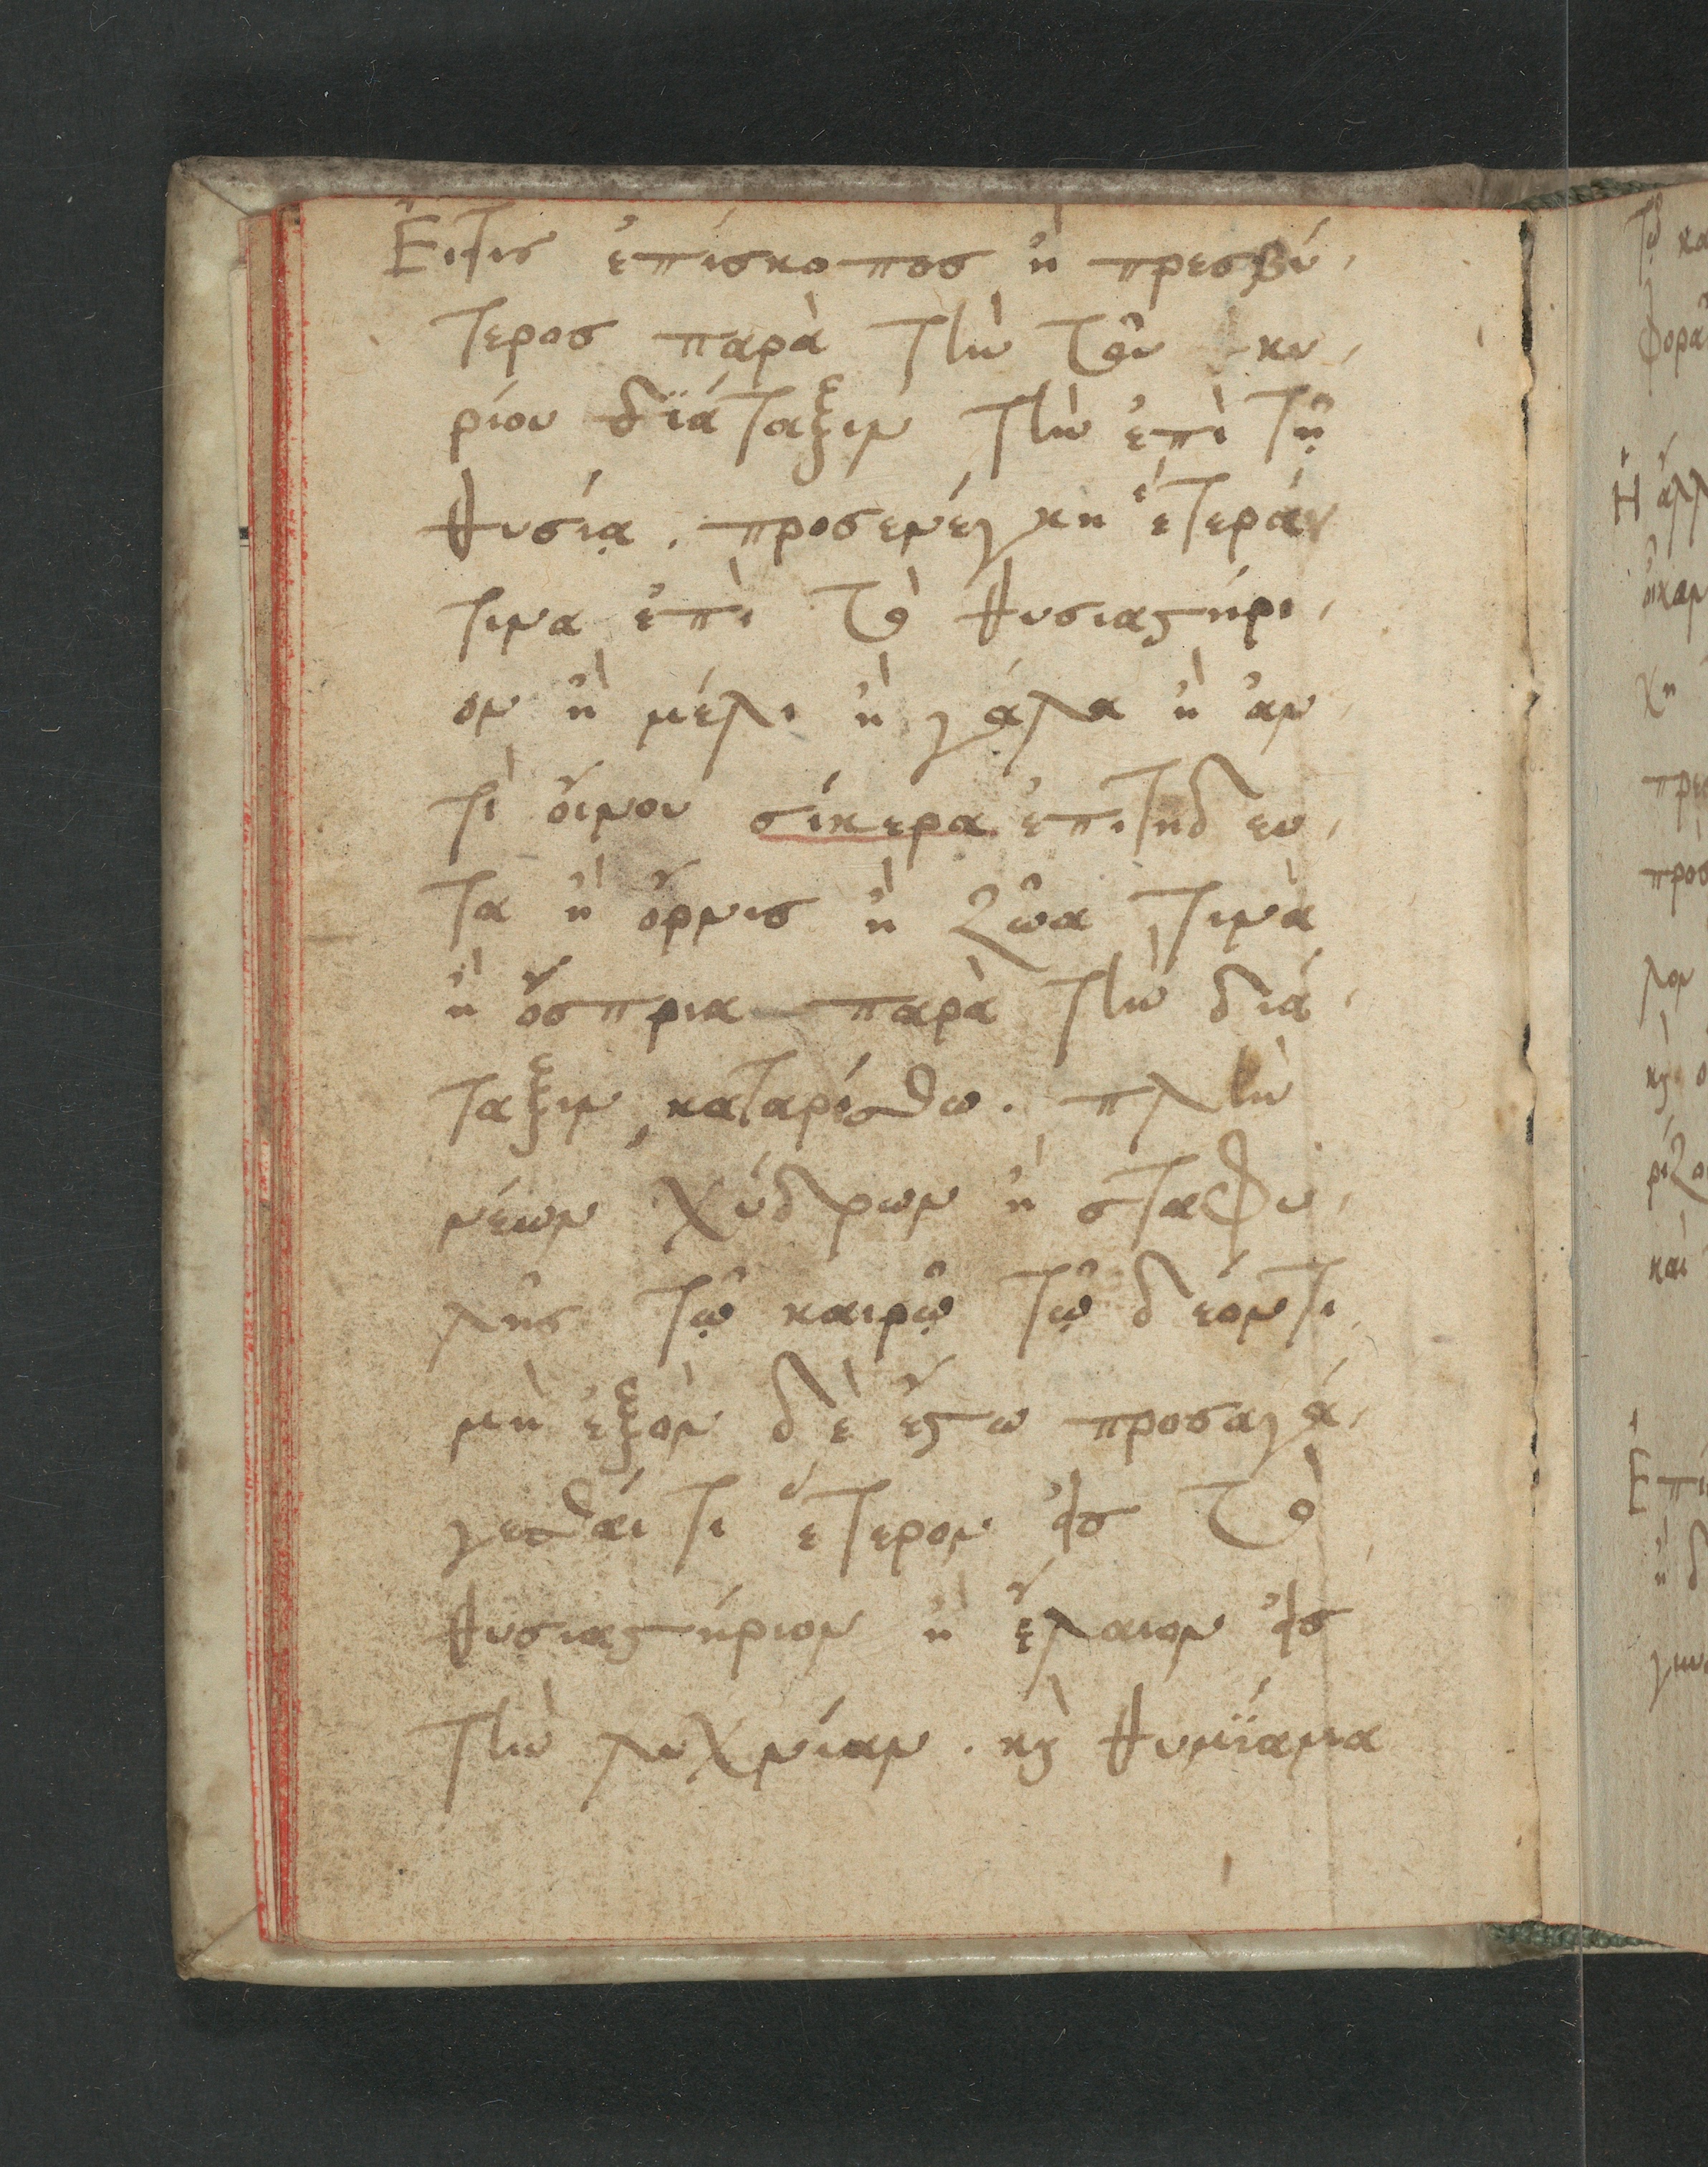 Εἴτις ἐπίσκοπος ἢ πρεσβύ,
τερος παρὰ τὴν τοῦ κυ,
ρίου διάταξιν τὴν ἐπὶ τῇ
θυσίᾳ. προσενέγκη ἕτεράν
τινα ἐπὶ τὸ θυσιαστήρι,
ον ἢ μέλι ἢ γάλα ἢ ἀν,
τὶ οἴνου σίκερα ἐπιτηδευ,
τα ἢ ὄρνις ἢ ζῶα τινὰ
ἢ ὄσπρια παρὰ τὴν διά,
ταξιν, καταρίσθω. πλὴν
νέων χύδρων ἢ σταφυ,
λῆς τῷ καιρῷ τῷ δέοντι,
μὴ ἐξὸν δὲ ἔστω προσαγά,
γεσθαί τι ἕτερον εἰς τὸ
θυσιαστήριον ἢ ἔλαιον εἰς
τὴν λυχνίαν. καὶ θυμίαμα
Τῷ
Ἢ
χη
λον
καὶ
καὶ